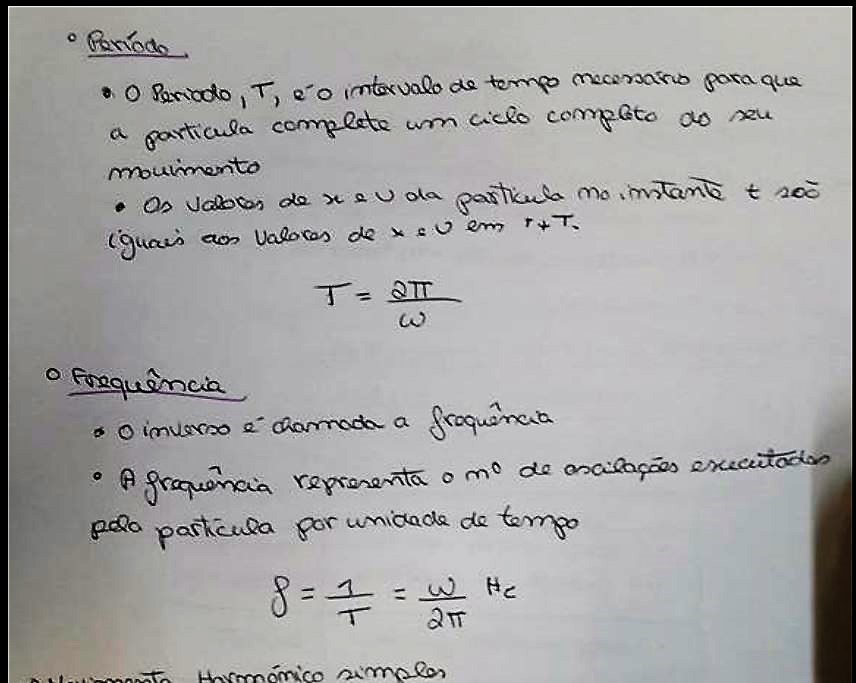 ° Período
• O Periodo, T, é o intervalo de tempo necessário para que
a particula complete um ciclo completo do seu
movimento
• Os valores de x e v da particula no instante t são
iguais aos valores de x e v em t+T.
T = 2π/ω
° Frequência
• O inverso é chamada a frequência
• A frequência representa o nº de oscilações executadas
pela particula por unidade de tempo
f = 1/T = ω/2π Hz
° Movimento Harmónico simples